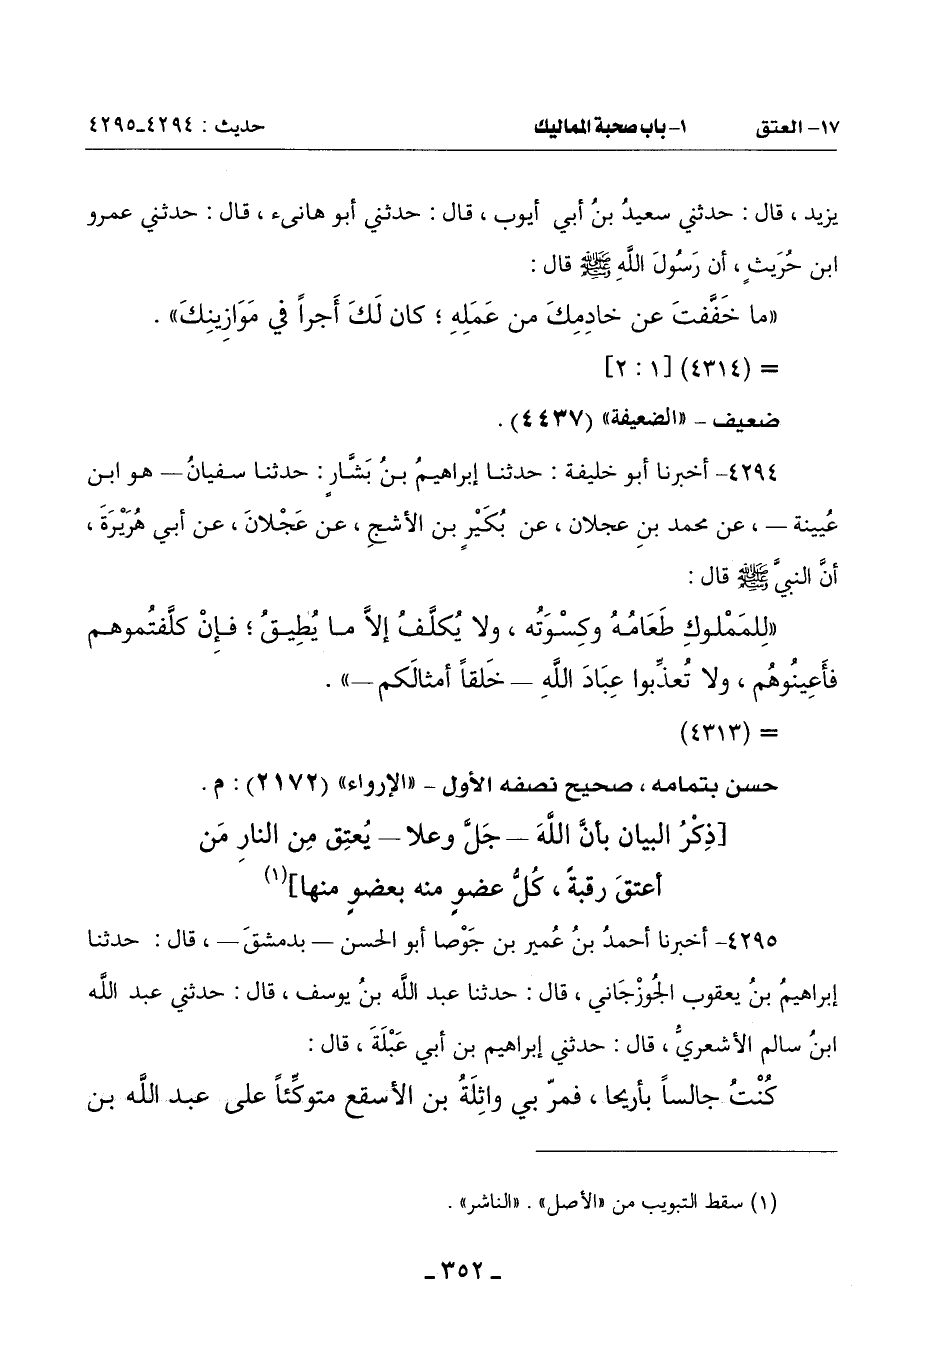 ١٧- العتق ١- باب صحبة المماليك حديث : ٤٢٩٤-٤٢٩٥
يزيد ، قال : حدثني سعيدُ بنُ أبي أيوب ، قال : حدثني أبو هانىء ، قال : حدثني عمرو
ابن حُرَيثٍ ، أن رَسُولَ اللَّهِ ﷺ قال :
«ما خَفَّفتَ عن خادِمِكَ من عَمَلِهِ ؛ كان لَكَ أَجراً في مَوَازِينِكَ» .
= (٤٣١٤) [١ : ٢]
ضعيف - «الضعيفة» (٤٤٣٧) .
٤٢٩٤- أخبرنا أبو خليفة : حدثنا إبراهيمُ بنُ بَشَّارٍ : حدثنا سفيانُ — هو ابن
عُيينة — ، عن محمد بنِ عجلان ، عن بُكَيْرٍ بن الأشجِ ، عن عَجْلانَ ، عن أبي هُرَيْرَةَ ،
أنَّ النبيَّ ﷺ قال :
«لِلمَمْلوكِ طَعَامُهُ وكِسْوَتُه ، ولا يُكلَّفُ إلاَّ ما يُطِيقُ ؛ فإنْ كلَّفتُموهم
فأَعِينُوهُم ، ولا تُعذِّبوا عِبَادَ اللَّهِ — خَلقاً أمثالَكم —» .
= (٤٣١٣)
حسن بتمامه ، صحيح نصفه الأول - «الإرواء» (٢١٧٢) : م .
[ذِكْرُ البيان بأنَّ اللَّهَ — جَلَّ وعلا — يُعتِق مِن النارِ مَن
أعتقَ رقبةً ، كُلُّ عضوٍ منه بعضوٍ منها](١)
٤٢٩٥- أخبرنا أحمدُ بنُ عُمير بن جَوْصا أبو الحسن — بدمشقَ — ، قال : حدثنا
إبراهيمُ بنُ يعقوب الجُوزْجَاني ، قال : حدثنا عبد اللَّه بنُ يوسف ، قال : حدثني عبد اللَّه
ابنُ سالم الأشعريُّ ، قال : حدثني إبراهيم بن أبي عَبْلَةَ ، قال :
كُنْتُ جالساً بأريحا ، فمرّ بي واثِلَةُ بن الأسقع متوكِّئاً على عبد اللَّه بن
(١) سقط التبويب من «الأصل» . «الناشر» .
- ٣٥٢ -